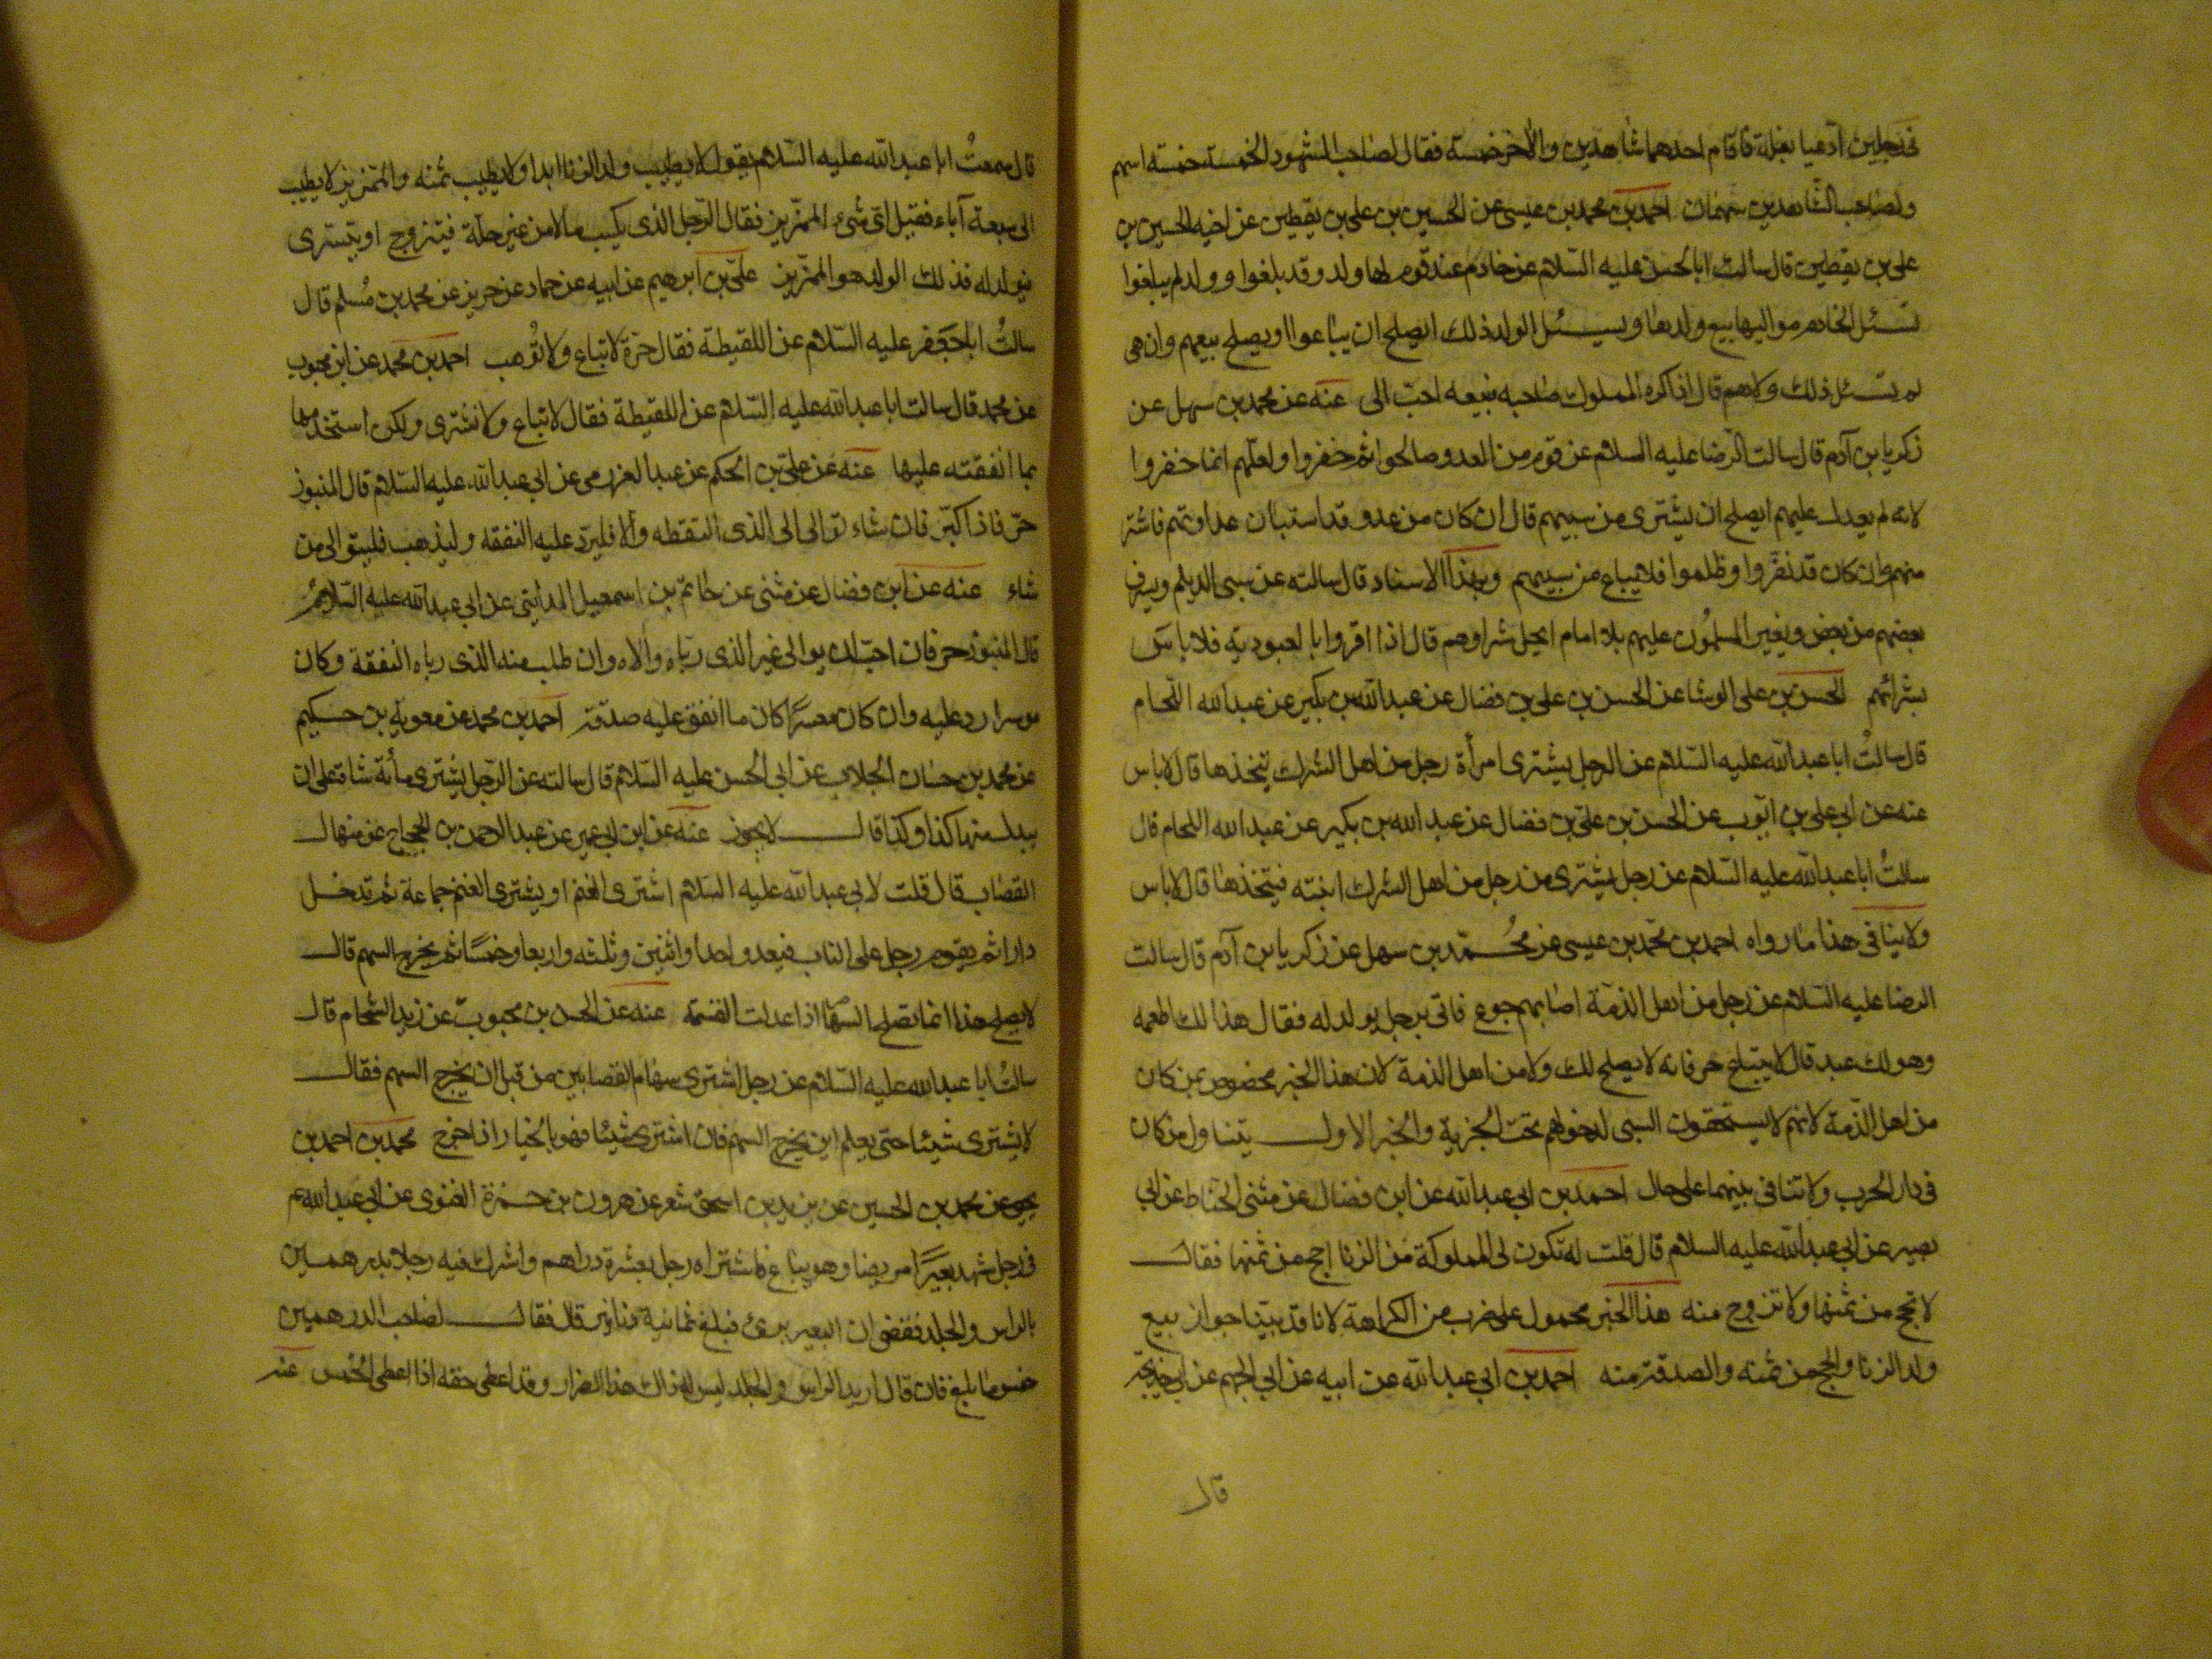 فى رجلين ادعيا بغلة فاقام احدهما شاهدين والاخر خمسة فقال لصاحب الشهود الخمسة خمسة اسهم
ولصاحب الشاهدين سهمان احمد بن محمد بن عيسى عن الحسين بن على بن يقطين عن اخيه الحسين بن
على بن يقطين قال سالت ابا الحسن عليه السّلام عن خادم عند قوم لها ولد وقد بلغوا وولد لم يبلغوا
تسئل الخادم مواليها بيع ولدها ويسئل الولد ذلك ايصلح ان يباعوا او يصلح بيعهم وان هى
لم تسئل ذلك ولاهم قال اذا كره المملوك صاحبه فبيعه احبّ الى عنه عن محمد بن سهل عن
زكريا بن آدم قال سالت الرّضا عليه السلام عن قوم من العدو صالحوا ثم خفروا ولعلّهم انما خفروا
لانه لم يعدل عليهم ايصلح ان يشترى من سبيهم قال ان كان من عدو قد استبان عداوتهم فاشتر
منهم وان كان قد نفّروا وظلموا فلا يبتاع من سبيهم وبهذا الاسناد قال سالته عن سبى الديلم ويسرق
بعضهم من بعض ويغير المسلمون عليهم بلا امام ايحل شراوهم قال اذا اقروا بالعبودية فلا باس
بشرائهم الحسن بن على الوشا عن الحسن بن على بن فضال عن عبد الله بن بكير عن عبد الله اللّحام
قال سالتُ ابا عبد الله عليه السّلام عن الرجل يشترى امرأة رجل من اهل الشرك يتخذها قال لا باس
عنه عن ابى على بن ايّوب عن الحسن بن علىّ بن فضال عن عبد الله بن بكير عن عبد الله اللحام قال
سالتُ ابا عبد الله عليه السّلام عن رجل يشترى من رجل من اهل الشرك ابنته فيتخذها قال لا باس
ولا ينافى هذا ما رواه احمد بن محمّد بن عيسى عن محُمّد بن سهل عن زكريا بن آدم قال سالت
الرضا عليه السلام عن رجل من اهل الذمّة اصابهم جوع فاتى برجل بولد له فقال هذا لك اطعمه
وهو لك عبد قال لا يبتاع حر فانه لا يصلح لك ولا من اهل الذمة لان هذا الخبر مخصوص بمن كان
من اهل الذّمة لانهم لا يستحقون السبى لدخولهم تحت الجزية والخبر الاول يتناول من كان
فى دار الحرب ولا تنافى بينهما على حال احمد بن ابى عبد الله عن ابن فضال عن مثنى الحنّاط عن ابى
بصير عن ابى عبد الله عليه السلام قال قلت له تكون لى المملوكة من الزنا احج من ثمنها فقال
لا تحج من ثمنها ولا تتزوج منه هذا الخبر محمول على ضرب من الكراهة لانا قد بيّنا جواز بيع
ولد الزنا والحج من ثمنه والصدقة منه احمد بن ابى عبد الله عن ابيه عن ابى الجهم عن ابى خديجة
قال
قال سمعتُ ابا عبد الله عليه السّلام يقول لا يطيب ولد الزنا ابدا ولا يطيب ثمنه والممزير لا يطيب
الى سبعة آباء فقيل اىّ شىء الممزير فقال الرّجل الذى يكسب مالا من غير حلّة فيتزوج او يتسرى
فيولد له فذلك الولد هو الممزير علىّ بن ابرهيم عن ابيه عن حماد عن حريز عن محمد بن مُسلم قال
سالتُ ابا جعفر عليه السّلام عن اللقيطة فقال حرّة لا تباع ولا تُوهب احمد بن محمد عن ابن محبوب
عن محمد قال سالت ابا عبد الله عليه السّلام عن اللقيطة فقال لا تباع ولا تشترى ولكن استخدمها
بما انفقته عليها عنه عن علىّ بن الحكم عن عبد العزرمى عن ابى عبد الله عليه السّلام قال المنبوذ
حرّ فاذا كبّر فان شاء توالى الى الذى التقطه والا فليردّ عليه النفقه وليذهب فليتوالى من
شاء عنه عن ابن فضال عن مثنى عن حاتم بن اسمعيل المداينى عن ابى عبد الله عليه السّلام
قال المنبوذ حر فان احبّ ان يوالى غير الذى ربّاه والاه وان طلب منه الذى رباه النفقة وكان
موسرا رد عليه وان كان معسرًا كان ما انفق عليه صدقة احمد بن محمد عن معوية بن حكيم
عن محمد بن حنان الجلاب عن ابى الحسن عليه السّلام قال سالته عن الرّجل يشترى مأئة شاة على ان
يبدل منها كذا وكذا قال لا يجوز عنه عن ابن ابى عمير عن عبد الرحمن بن الحجاج عن منهال
القصاب قال قلت لابى عبد الله عليه السّلام اشترى الغنم او يشترى الغنم جماعة ثم تدخل
دارا ثم يقوم رجل على الباب فيعد واحدا واثنين وثلثه واربعا وخمسًا ثم يخرج السهم قال
لا يصلح هذا انما تصلح السهام اذا عدلت القسمة عنه عن الحسن بن محبوب عن زيد الشحام قال
سالتُ ابا عبد الله عليه السّلام عن رجل اشترى سهام القصابين من قبل ان يخرج السهم فقال
لا يشترى شيئا حتى يعلم اين يخرج السهم فان اشترى شيئا فهو بالخيار اذا خرج محمد بن احمد بن
يحيى عن محمد بن الحسين عن يزيد بن اسحق شعر عن هرون بن حمزة الغنوى عن ابى عبد الله ع
فى رجل شهد بعيرًا مريضا وهو يباع فاشتراه رجل بعشرة دراهم واشرك فيه رجلا بدرهمين
بالراس والجلد فقضى ان البعير برئ فبلغ ثمانية دنانير قال فقال لصاحب الدرهمين
خمس ما بلغ فان قال اريد الراس والجلد ليس له ذلك هذا الضرار وقد اعطى حقه اذا اعطى الخمس عنه